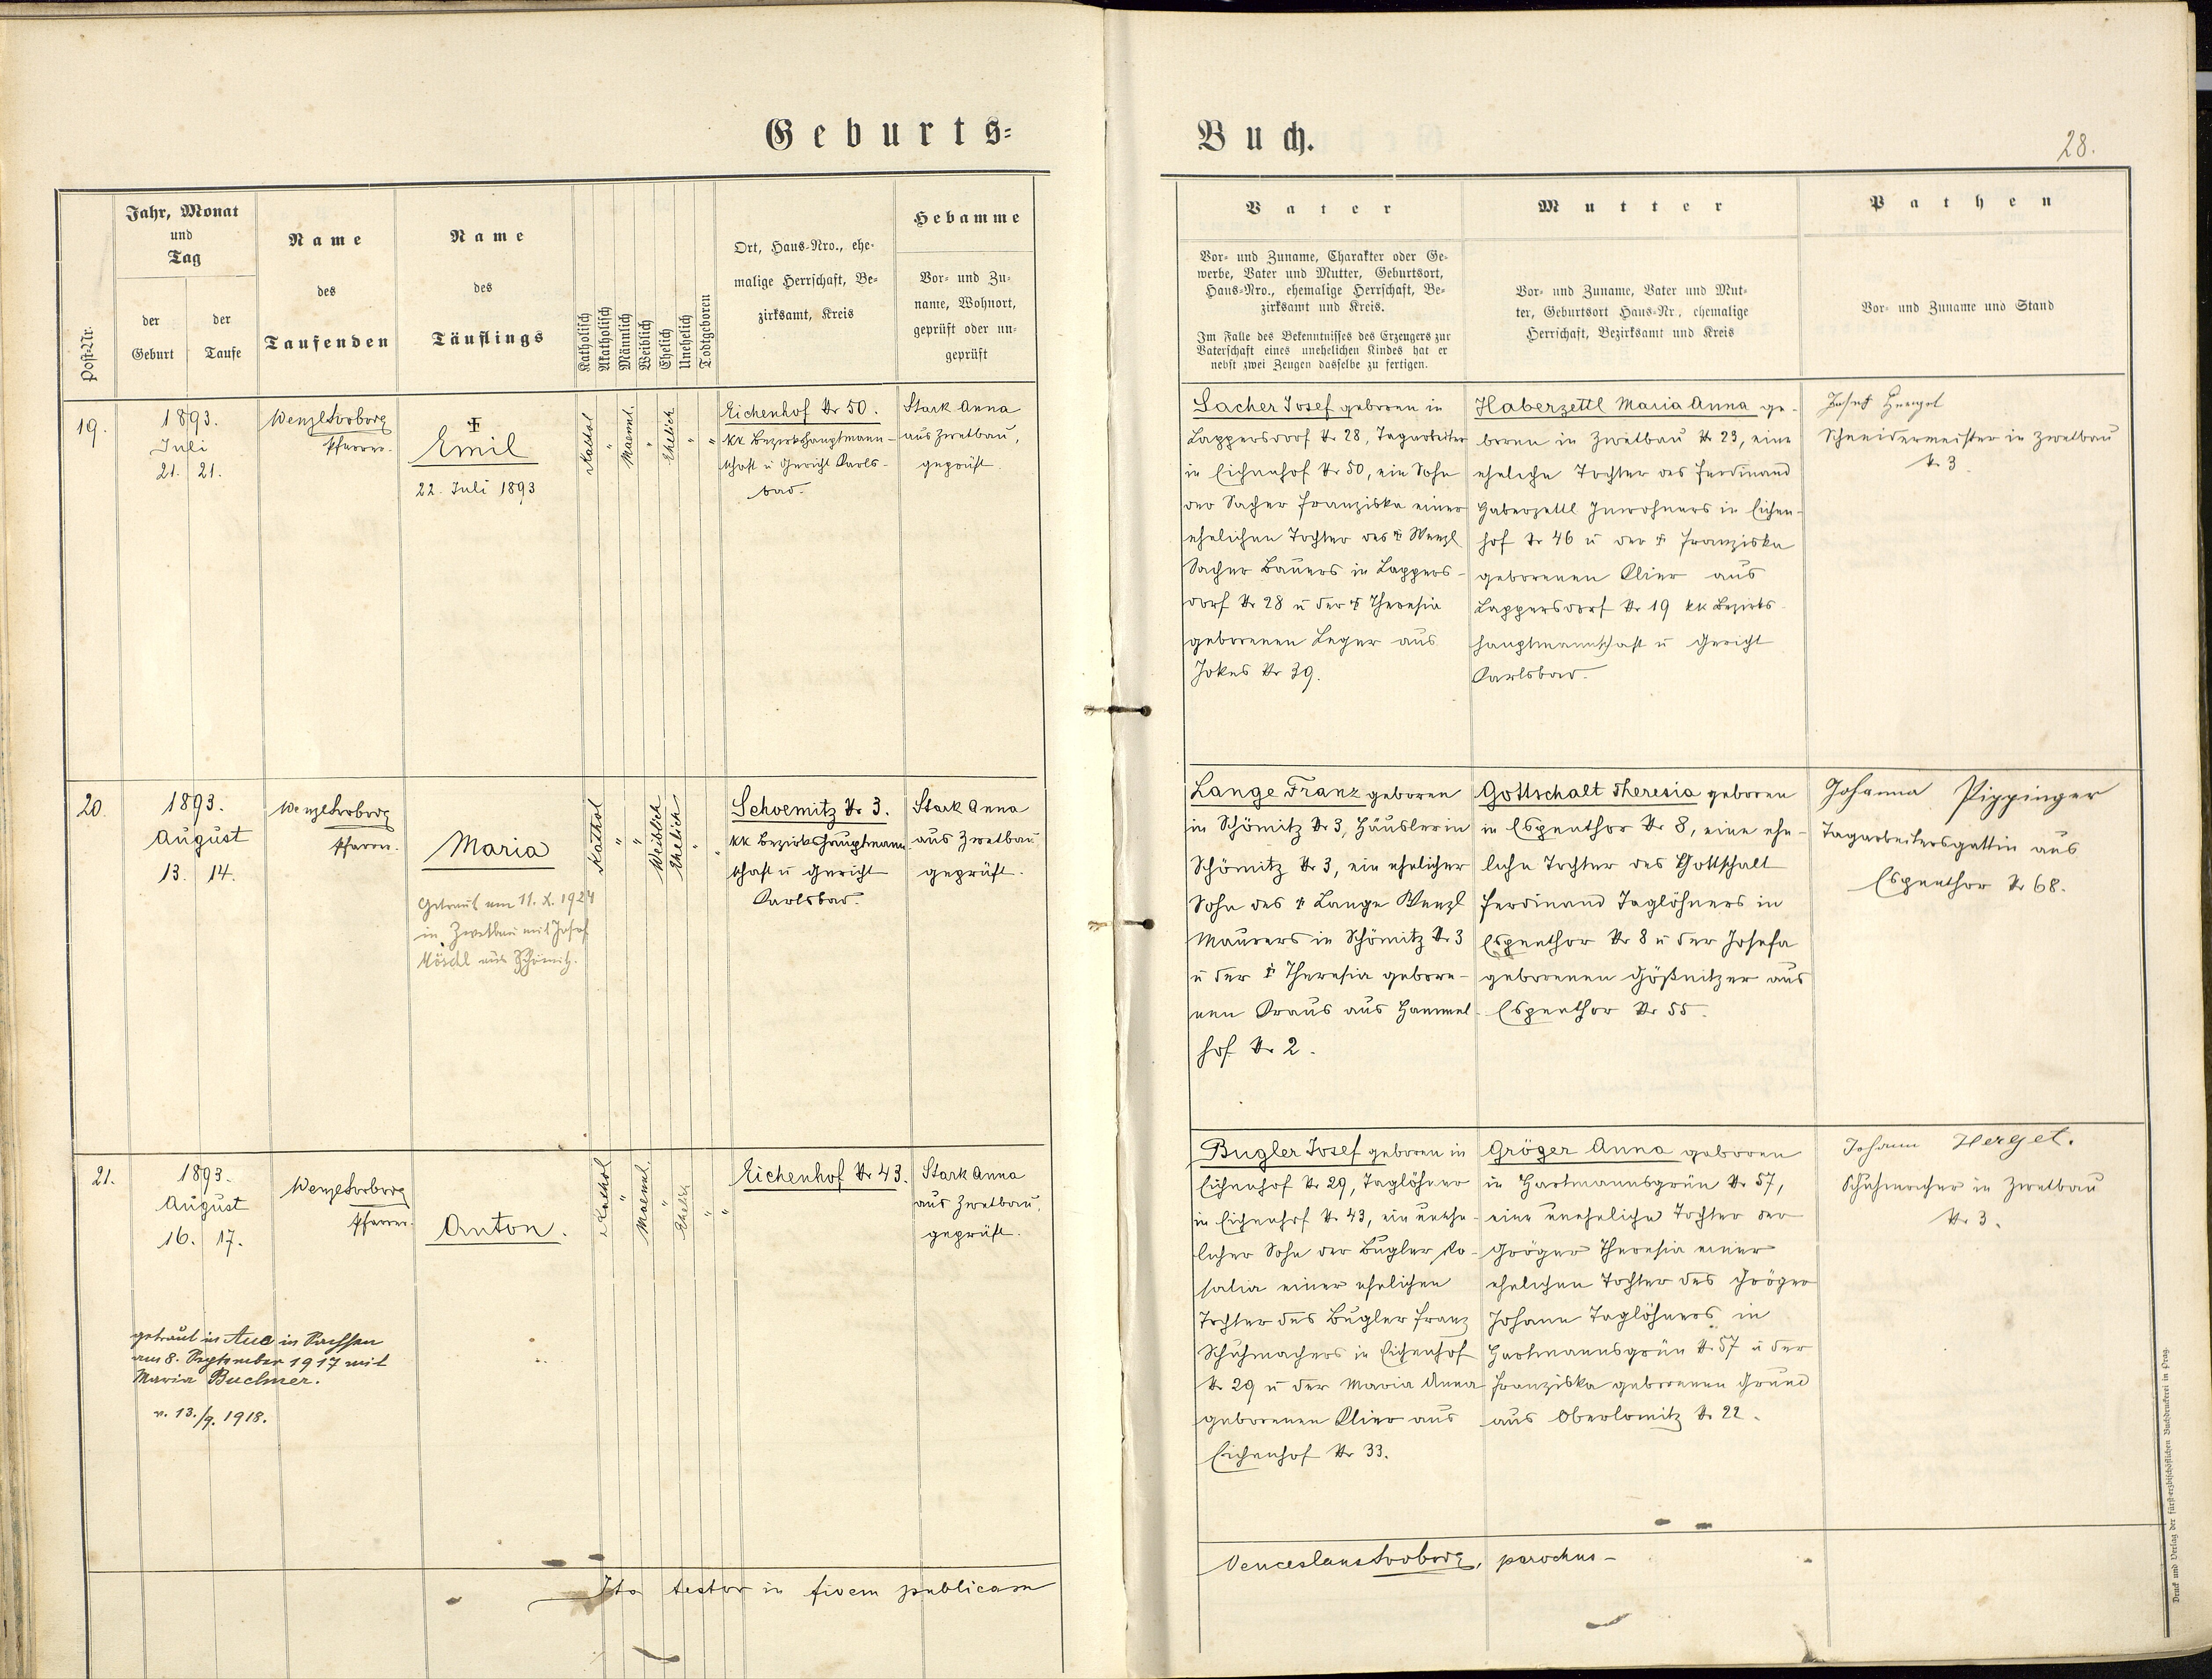 Geburts=
Buch.
28.
Post-Nr.
Jahr, Monat
und
Tag
der
Geburt
der
Taufe
Name
des
Taufenden
Name
des
Täuflings
Katholisch
Akatholisch
Männlich
Weiblich
Ehelich
Unehelich
Todtgeboren
Ort, Haus-Nro., ehe-
malige Herrschaft, Be-
zirksamt, Kreis
Hebamme
Vor- und Zu-
name, Wohnort,
geprüft oder un-
geprüft
Vater
Vor- und Zuname, Charakter oder Ge-
werbe, Vater und Mutter, Geburtsort,
Haus-Nro., ehemalige Herrschaft, Be-
zirksamt und Kreis.
Im Falle des Bekenntnisses des Erzeugers zur
Vaterschaft eines unehelichen Kindes hat er
nebst zwei Zeugen dasselbe zu fertigen.
Mutter
Vor- und Zuname, Vater und Mut-
ter, Geburtsort Haus-Nr., ehemalige
Herrschaft, Bezirksamt und Kreis
Pathen
Vor- und Zuname und Stand
19.
1893.
Juli
21. 21.
Wenzl
Pfarrer.
Emil
22. Juli 1893
Kathol
"
Maennl.
"
Ehelich
"
"
Eichenhof Nr 50.
kk Bezirkshauptmann-
schaft u Gericht Karls-
bad.
Stark Anna
aus Zwetbau,
geprüft.
Sacher Josef geboren in
Lappersdorf Nr 28, Tagarbeiter
in Eichenhof Nr 50, ein Sohn
der Sacher Franziska einer
ehelichen Tochter des † Wenzl
Sacher Bauers in Lappers-
dorf Nr 28 u der † Theresia
geborenen Leger aus
Jokes Nr 39.
Haberzettl Maria Anna ge-
boren in Zwetbau Nr 23, eine
eheliche Tochter des Ferdinand
Haberzettl Inwohners in Eichen-
hof Nr 46 u der † Franziska
geborenen Klier aus
Lappersdorf Nr 19 kk Bezirks-
hauptmannschaft u Gericht
Karlsbad.
Josef Herget
Schneidermeister in Zwetbau
Nr 3.
20.
1893.
August
13. 14.
Wenzl
Pfarrer.
Maria
Getraut am 11. X. 1924
in Zwetbau mit Josef
Möschl aus Schömitz.
Kathol
"
"
Weiblich
Ehelich
"
"
Schoemitz Nr 3.
kk Bezirkshauptmann-
schaft u Gericht
Karlsbad.
Stark Anna
aus Zwetbau
geprüft.
Lange Franz geboren
in Schömitz Nr 3, Häusler in
Schömitz Nr 3, ein ehelicher
Sohn des † Lange Wenzl
Maurers in Schömitz Nr 3
u der † Theresia gebore-
nen Kraus aus Hammel-
hof Nr 2.
Gottschalt Theresia geboren
in Espenthor Nr 8, eine ehe-
liche Tochter des Gottschalt
Ferdinand Taglöhners in
Espenthor Nr 8 u der Josefa
geborenen Gößnitzer aus
Espenthor Nr 55.
Johanna Pippinger
Tagarbeitersgattin aus
Espenthor Nr 68.
21.
1893.
August
16. 17.
Wenzl
Pfarrer.
Anton.
getraut in Aue in Sachsen
am 8. September 1917 mit
Maria Buchner.
v. 13./9. 1918.
Kathol
"
Maennl.
"
Ehelich
"
"
Eichenhof Nr 43.
Stark Anna
aus Zwetbau,
geprüft.
Bugler Josef geboren in
Eichenhof Nr 29, Taglöhner
in Eichenhof Nr 43, ein unehe-
licher Sohn der Bugler Ro-
salia einer ehelichen
Tochter des Bugler Franz
Schuhmachers in Eichenhof
Nr 29 u der Maria Anna
geborenen Klier aus
Eichenhof Nr 33.
Gröger Anna geboren
in Hartmannsgrün Nr 57,
eine uneheliche Tochter der
Gröger Theresia einer
ehelichen Tochter des Gröger
Johann Taglöhners in
Hartmannsgrün Nr 57 u der
Franziska geborenen Grund
aus Oberlomitz Nr 22.
Johann Herget.
Schuhmacher in Zwetbau
Nr 3.
Ita testor in fidem publicam
Venceslaus parochus-
Druck und Verlag der fürst-erzbischöflichen Buchdruckerei in Prag.